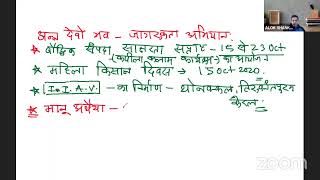 अन्न देवो भव - जागरूकता अभियान.
* बौद्धिक संपदा साक्षरता सप्ताह - 15 से 23 Oct
(कपिला कलाम कार्यक्रम) का आयोजन
* महिला किसान दिवस - 15 Oct 2020.
* I.I.A.V. - का निर्माण - थोनक्कल, तिरुवनंतपुरम
केरल.
* मानू प्रवैया - (
ALOK SHANK...
zoom